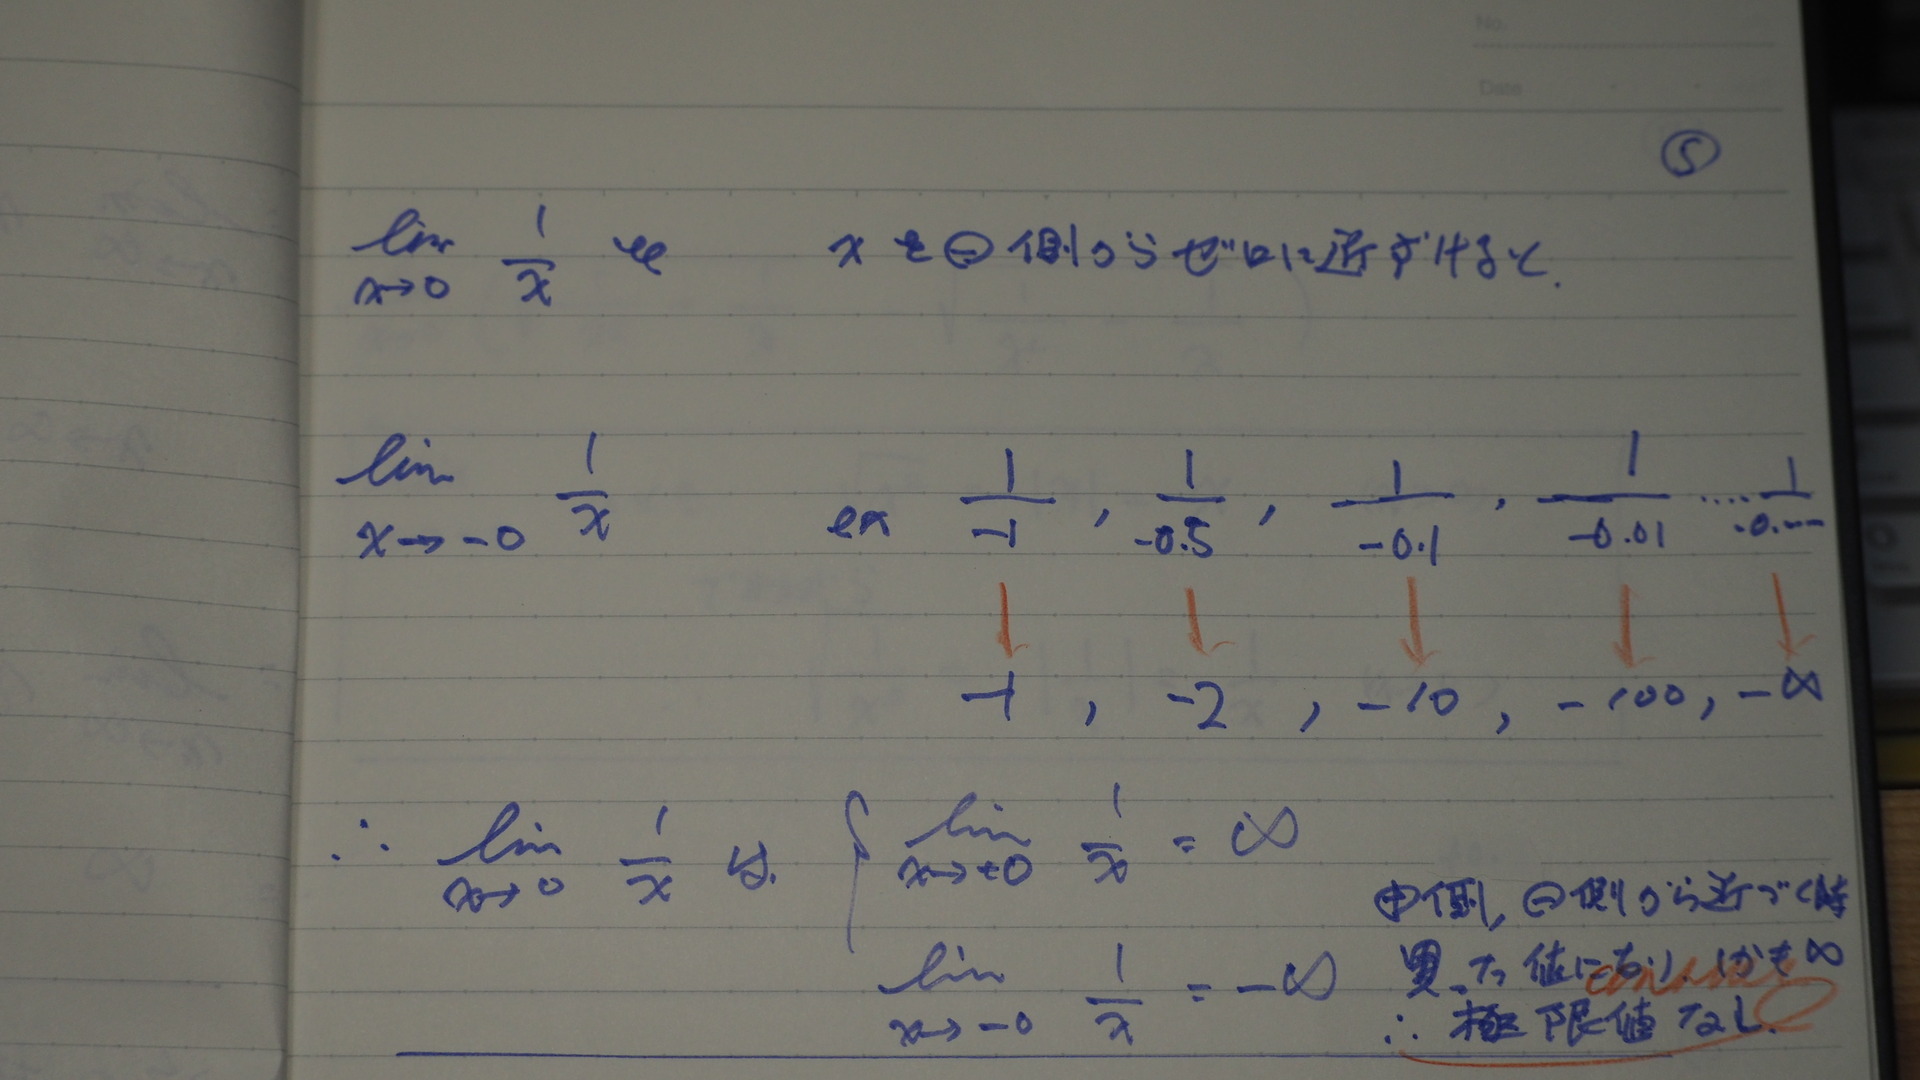 No.
Date
⑤
lim x→0 1/x を x を ⊖ 側から ゼロに近ずけると.
lim x→-0 1/x ex 1/-1 , 1/-0.5 , 1/-0.1 , 1/-0.01 ..... 1/-0.
-1 , -2 , -10 , -100 , -∞
∴ lim x→0 1/x は. { lim x→+0 1/x = ∞
⊕側, ⊖側から近づく時
lim x→-0 1/x = -∞
異った値になり、しかも∞
∴ 極限値なし.